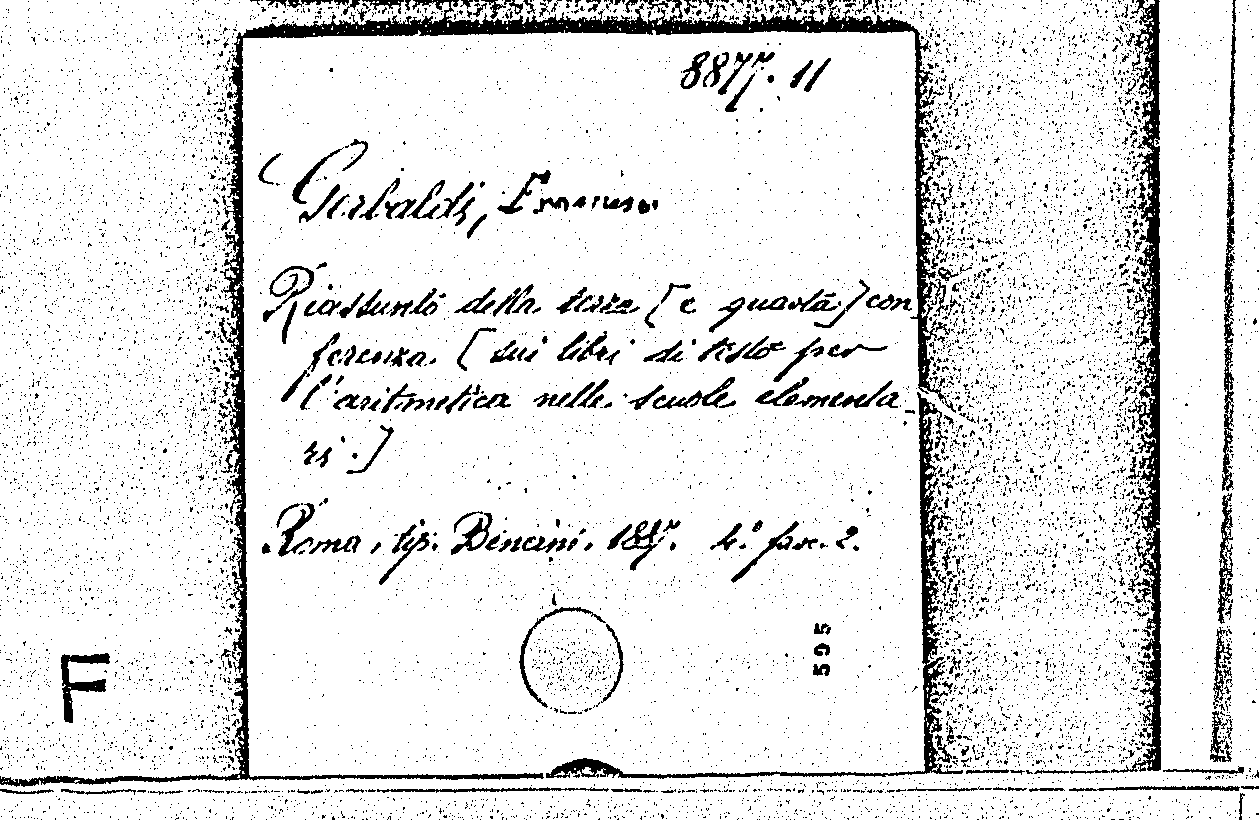 8877. 11
Gerbaldi, Francesco
Riassunto della terza [e quarta] con
ferenza [sui libri di testo per
l'aritmetica nelle scuole elementa_
ri.]
Roma, tip. Bencini. 1887. 4.° fasc. 2.
595
F